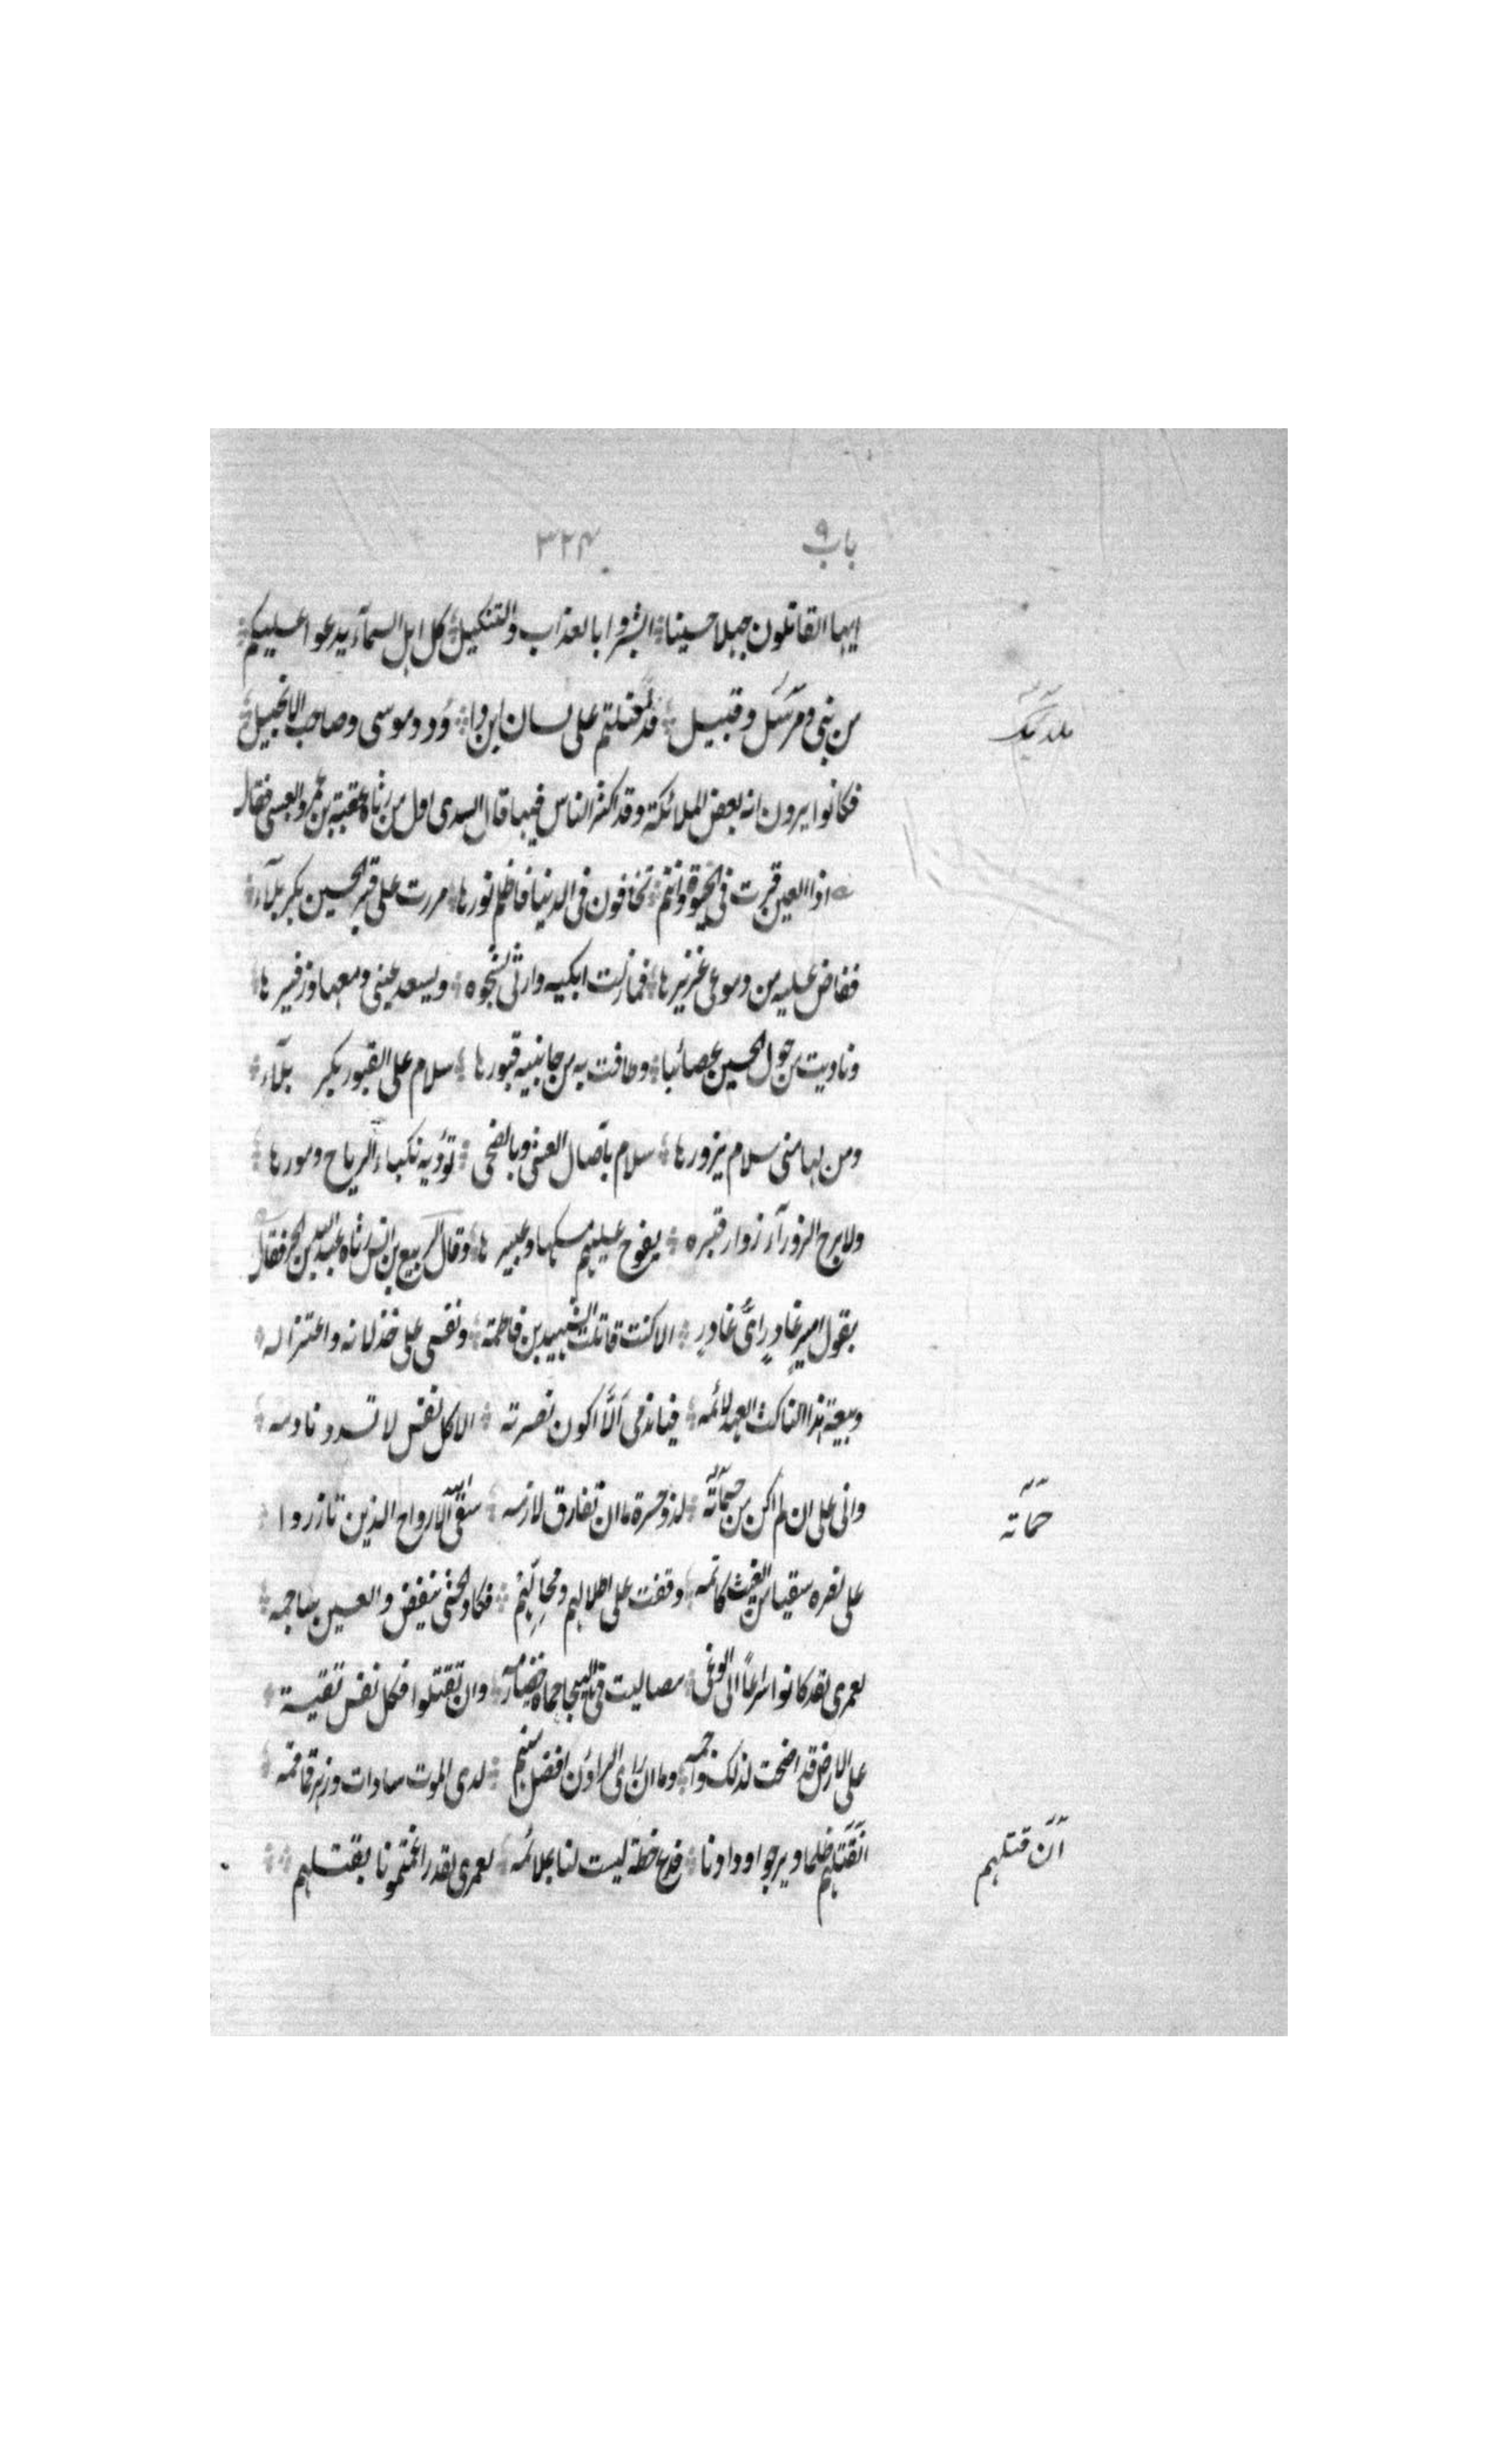 باب ٩ ٣٢٤
ايها القاتلون جهلا حسينا * ابشروا بالعذاب والتنكيل * كل اهل السمآء يدعوا عليكم *
من نبي ومرسل وقبيل * قد لعنتم على لسان ابن دا * ؤد وموسى وصاحب الانجيل *
ملائك
فكانوا يرون انه بعض الملائكة وقد اكثر الناس فيها قال السدى اول من رثاه عقبة بن عمرو العبسى فقال
اذا العين قرت فى الحيوة وانتم * تخافون فى الدنيا فاظلم نورها * مررت على قبر الحسين بكربلآء *
ففاض عليه من دموعى غزيرها * فما زلت ابكيه وارثى لشجوه * ويسعد عينى دمعها وزفيرها *
وناديت من حول الحسين عصائبا * وطافت به من جانبيه قبورها * سلام على القبور بكربلآء *
ومن لها منى سلام يزورها * سلام بآصال العشى وبالضحى * تؤديه نكباء الرياح ومورها *
ولا برح الزورآء زوار قبره * يفوح عليهم مسكها وعبيرها * وقال الربيع بن انس رثاه عبيد الله بن الحر فقال
يقول امير غادر اىّ غادر * الا كنت قاتلت الشهيد بن فاطمة * ونفسى على خذلانه واعتزاله *
وبيعة هذا الناكث العهد لائمه * فيا ندمى الّا اكون نصرته * الا كل نفس لا تسدد نادمه *
وانى على ان لم اكن من حماته * لذو حسرة ما ان تفارق لازمه * سقى الله ارواح الذين تازروا *
حماته
على نصره سقيا من الغيث كاتمه * وقفت على اطلالهم ومحالهم * فكاد الحشى ينفض والعين ساجمه *
لعمرى لقد كانوا سراعًا الى الوغى * مصاليت فى الهيجا حماة خضارمه * وان تقتلوا فكل نفس تقية *
على الارض قد اضحت لذلك واجمه * وما ان راى الراؤن افضل منهم * لدى الموت سادات وزهر قماقمه *
انقتلهم ظلما ويرجوا ودادنا * فدع خطة ليست لنا بملائمه * لعمرى لقد راغمتمونا بقتلهم **
آن قتلهم